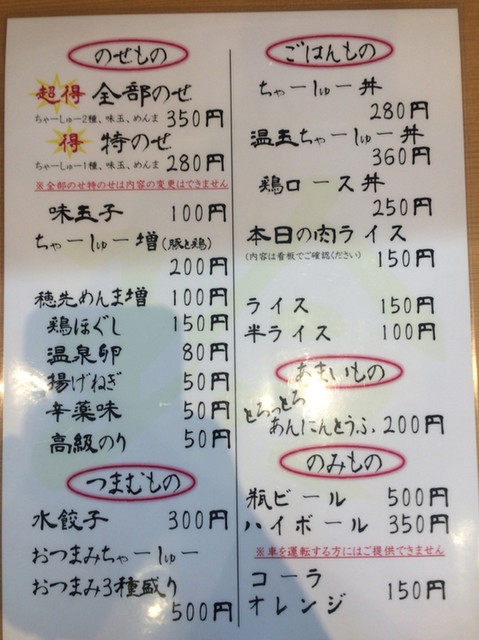 のせもの
超得 全部のせ
ちゃーしゅー2種、味玉、めんま 350円
得 特のせ
ちゃーしゅー1種、味玉、めんま 280円
※全部のせ特のせは内容の変更はできません
味玉子 100円
ちゃーしゅー増(豚と鶏)
200円
穂先めんま増 100円
鶏ほぐし 150円
温泉卵 80円
揚げねぎ 50円
辛薬味 50円
高級のり 50円
つまむもの
水餃子 300円
おつまみちゃーしゅー
おつまみ3種盛り
500円
ごはんもの
ちゃーしゅー丼
280円
温玉ちゃーしゅー丼
360円
鶏ロース丼
250円
本日の肉ライス
(内容は看板でご確認ください) 150円
ライス 150円
半ライス 100円
あまいもの
とろっとろ
あんにんとうふ 200円
のみもの
瓶ビール 500円
ハイボール 350円
※車を運転する方にはご提供できません
コーラ
オレンジ 150円